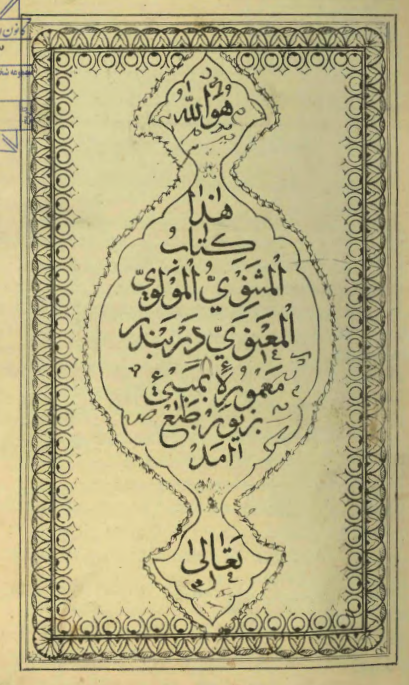 هو الله
هذا
كتاب
المثنوي المولوي
المعنوي در بندر
معمورهٔ بمبئي
بزيور طبع
آمد
تعالى